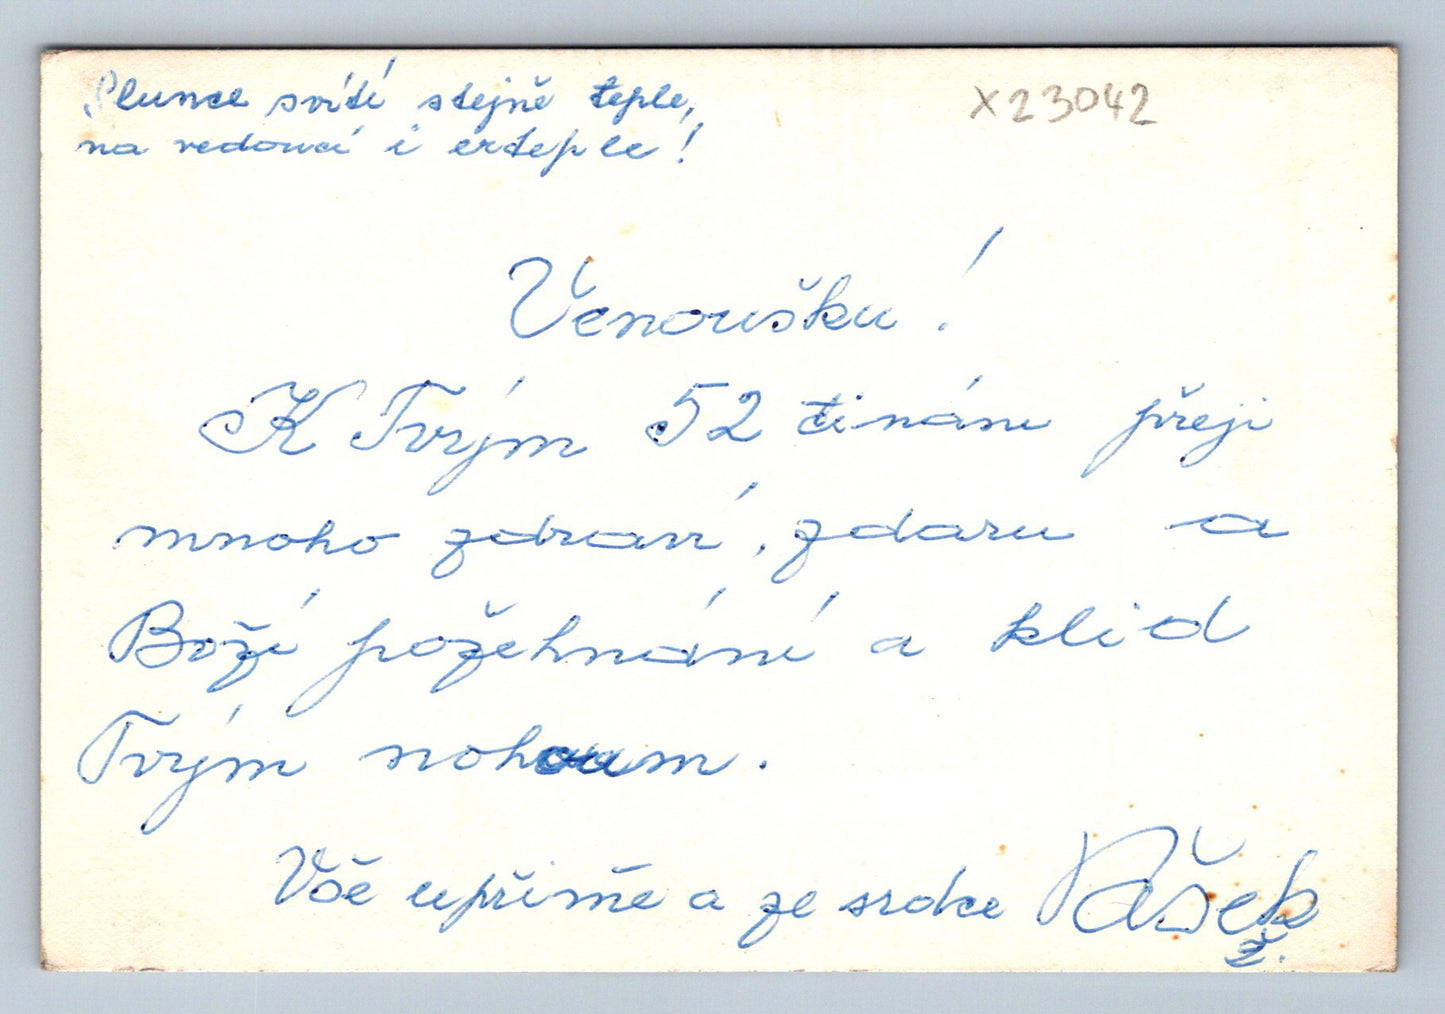 Slunce svítí stejně teple,
X23042
na vedoucí i erteple!
Venoušku!
K Tvým 52 tinám přeji
mnoho zdraví, zdaru a
Boží požehnání a klid
Tvým nohoum.
Vše upřímě a ze srdce Vašek
Ž.